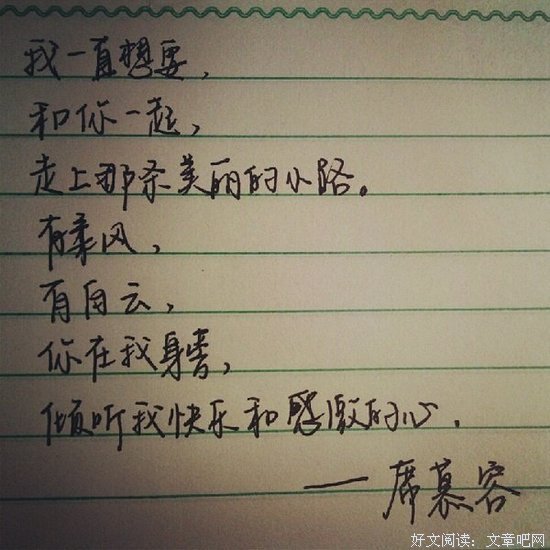 我一直想要，
和你一起，
走上那条美丽的小路。
有柔风，
有白云，
你在我身旁，
倾听我快乐和感激的心.
—席慕容
好文阅读：文章吧网